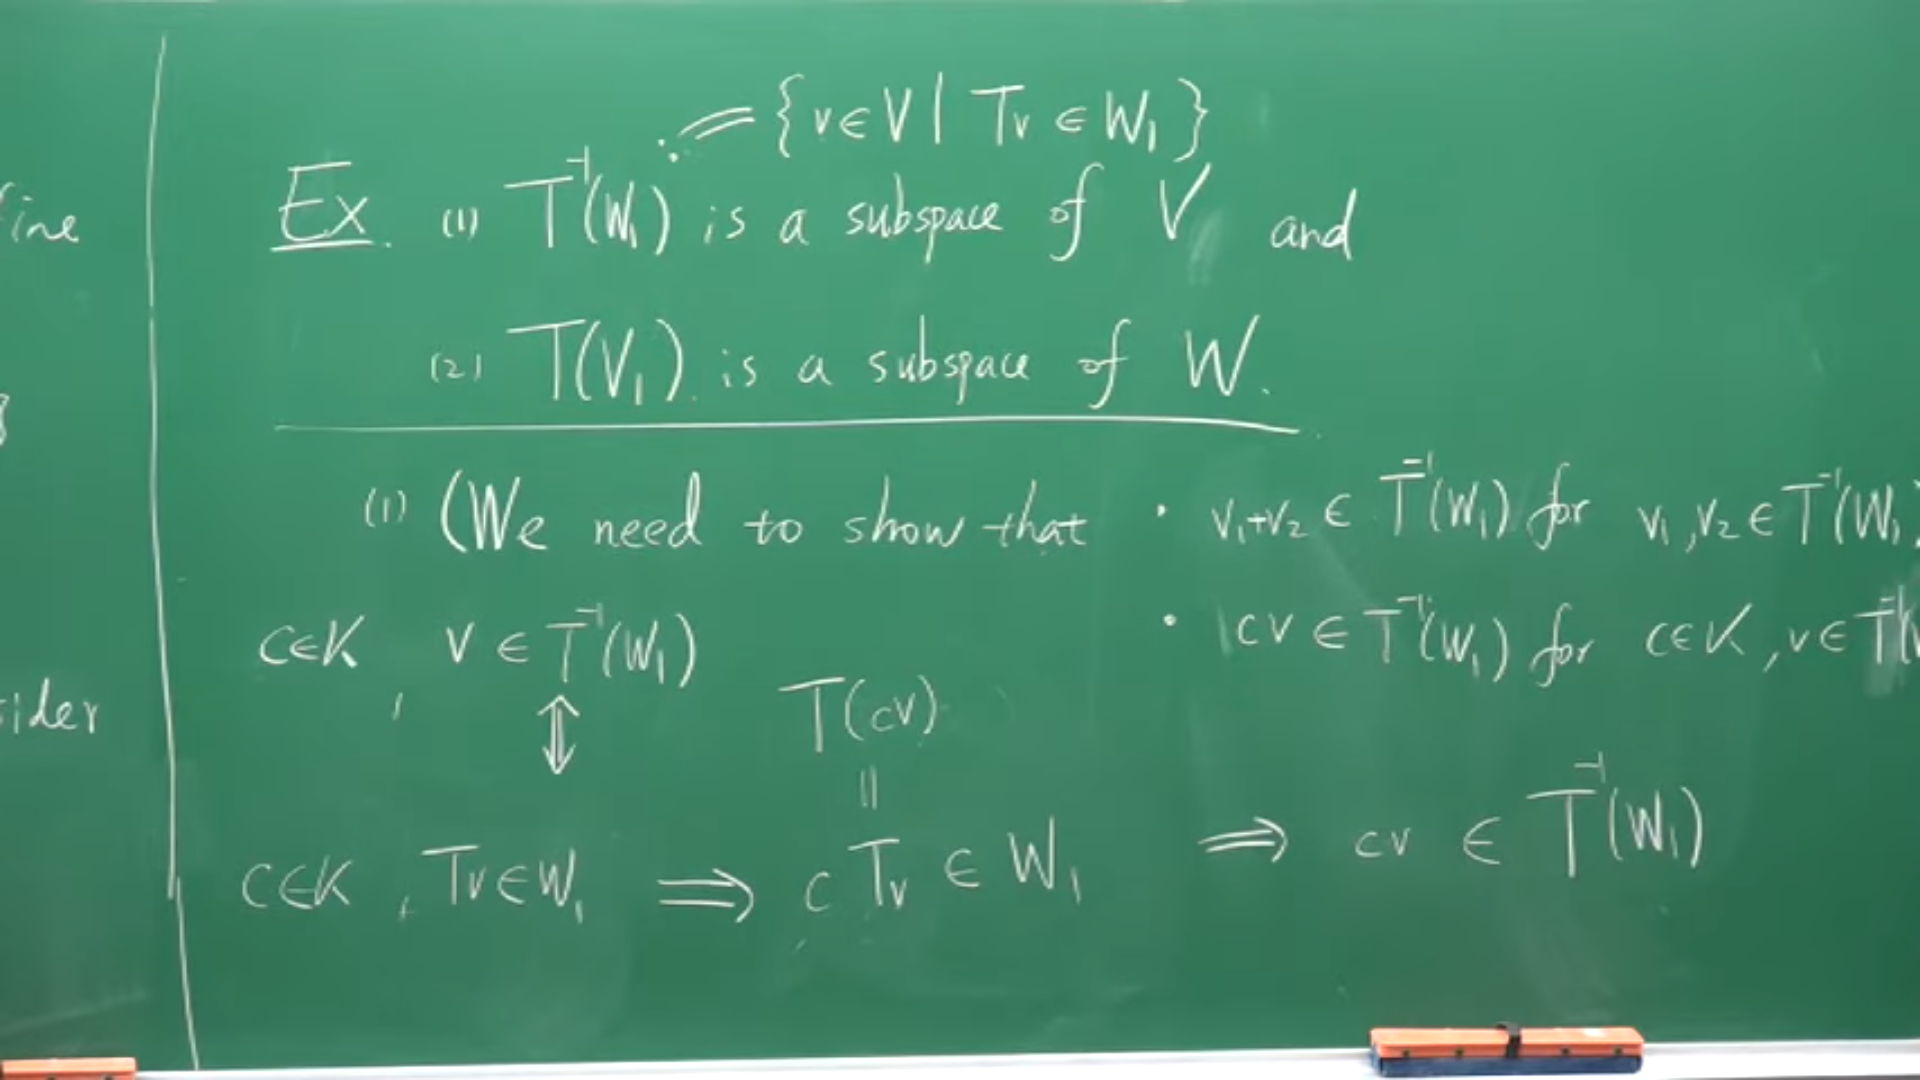 := {v∈V | Tv ∈ W₁}
Ex. (1) T⁻¹(W₁) is a subspace of V and
(2) T(V₁) is a subspace of W.
(1) (We need to show that · v₁+v₂ ∈ T⁻¹(W₁) for v₁,v₂ ∈ T⁻¹(W₁)
· cv ∈ T⁻¹(W₁) for c∈K, v∈T⁻¹(
c∈K, v ∈ T⁻¹(W₁)
⇕
T(cv)
||
c∈K, Tv∈W₁ ⟹ c Tv ∈ W₁ ⟹ cv ∈ T⁻¹(W₁)